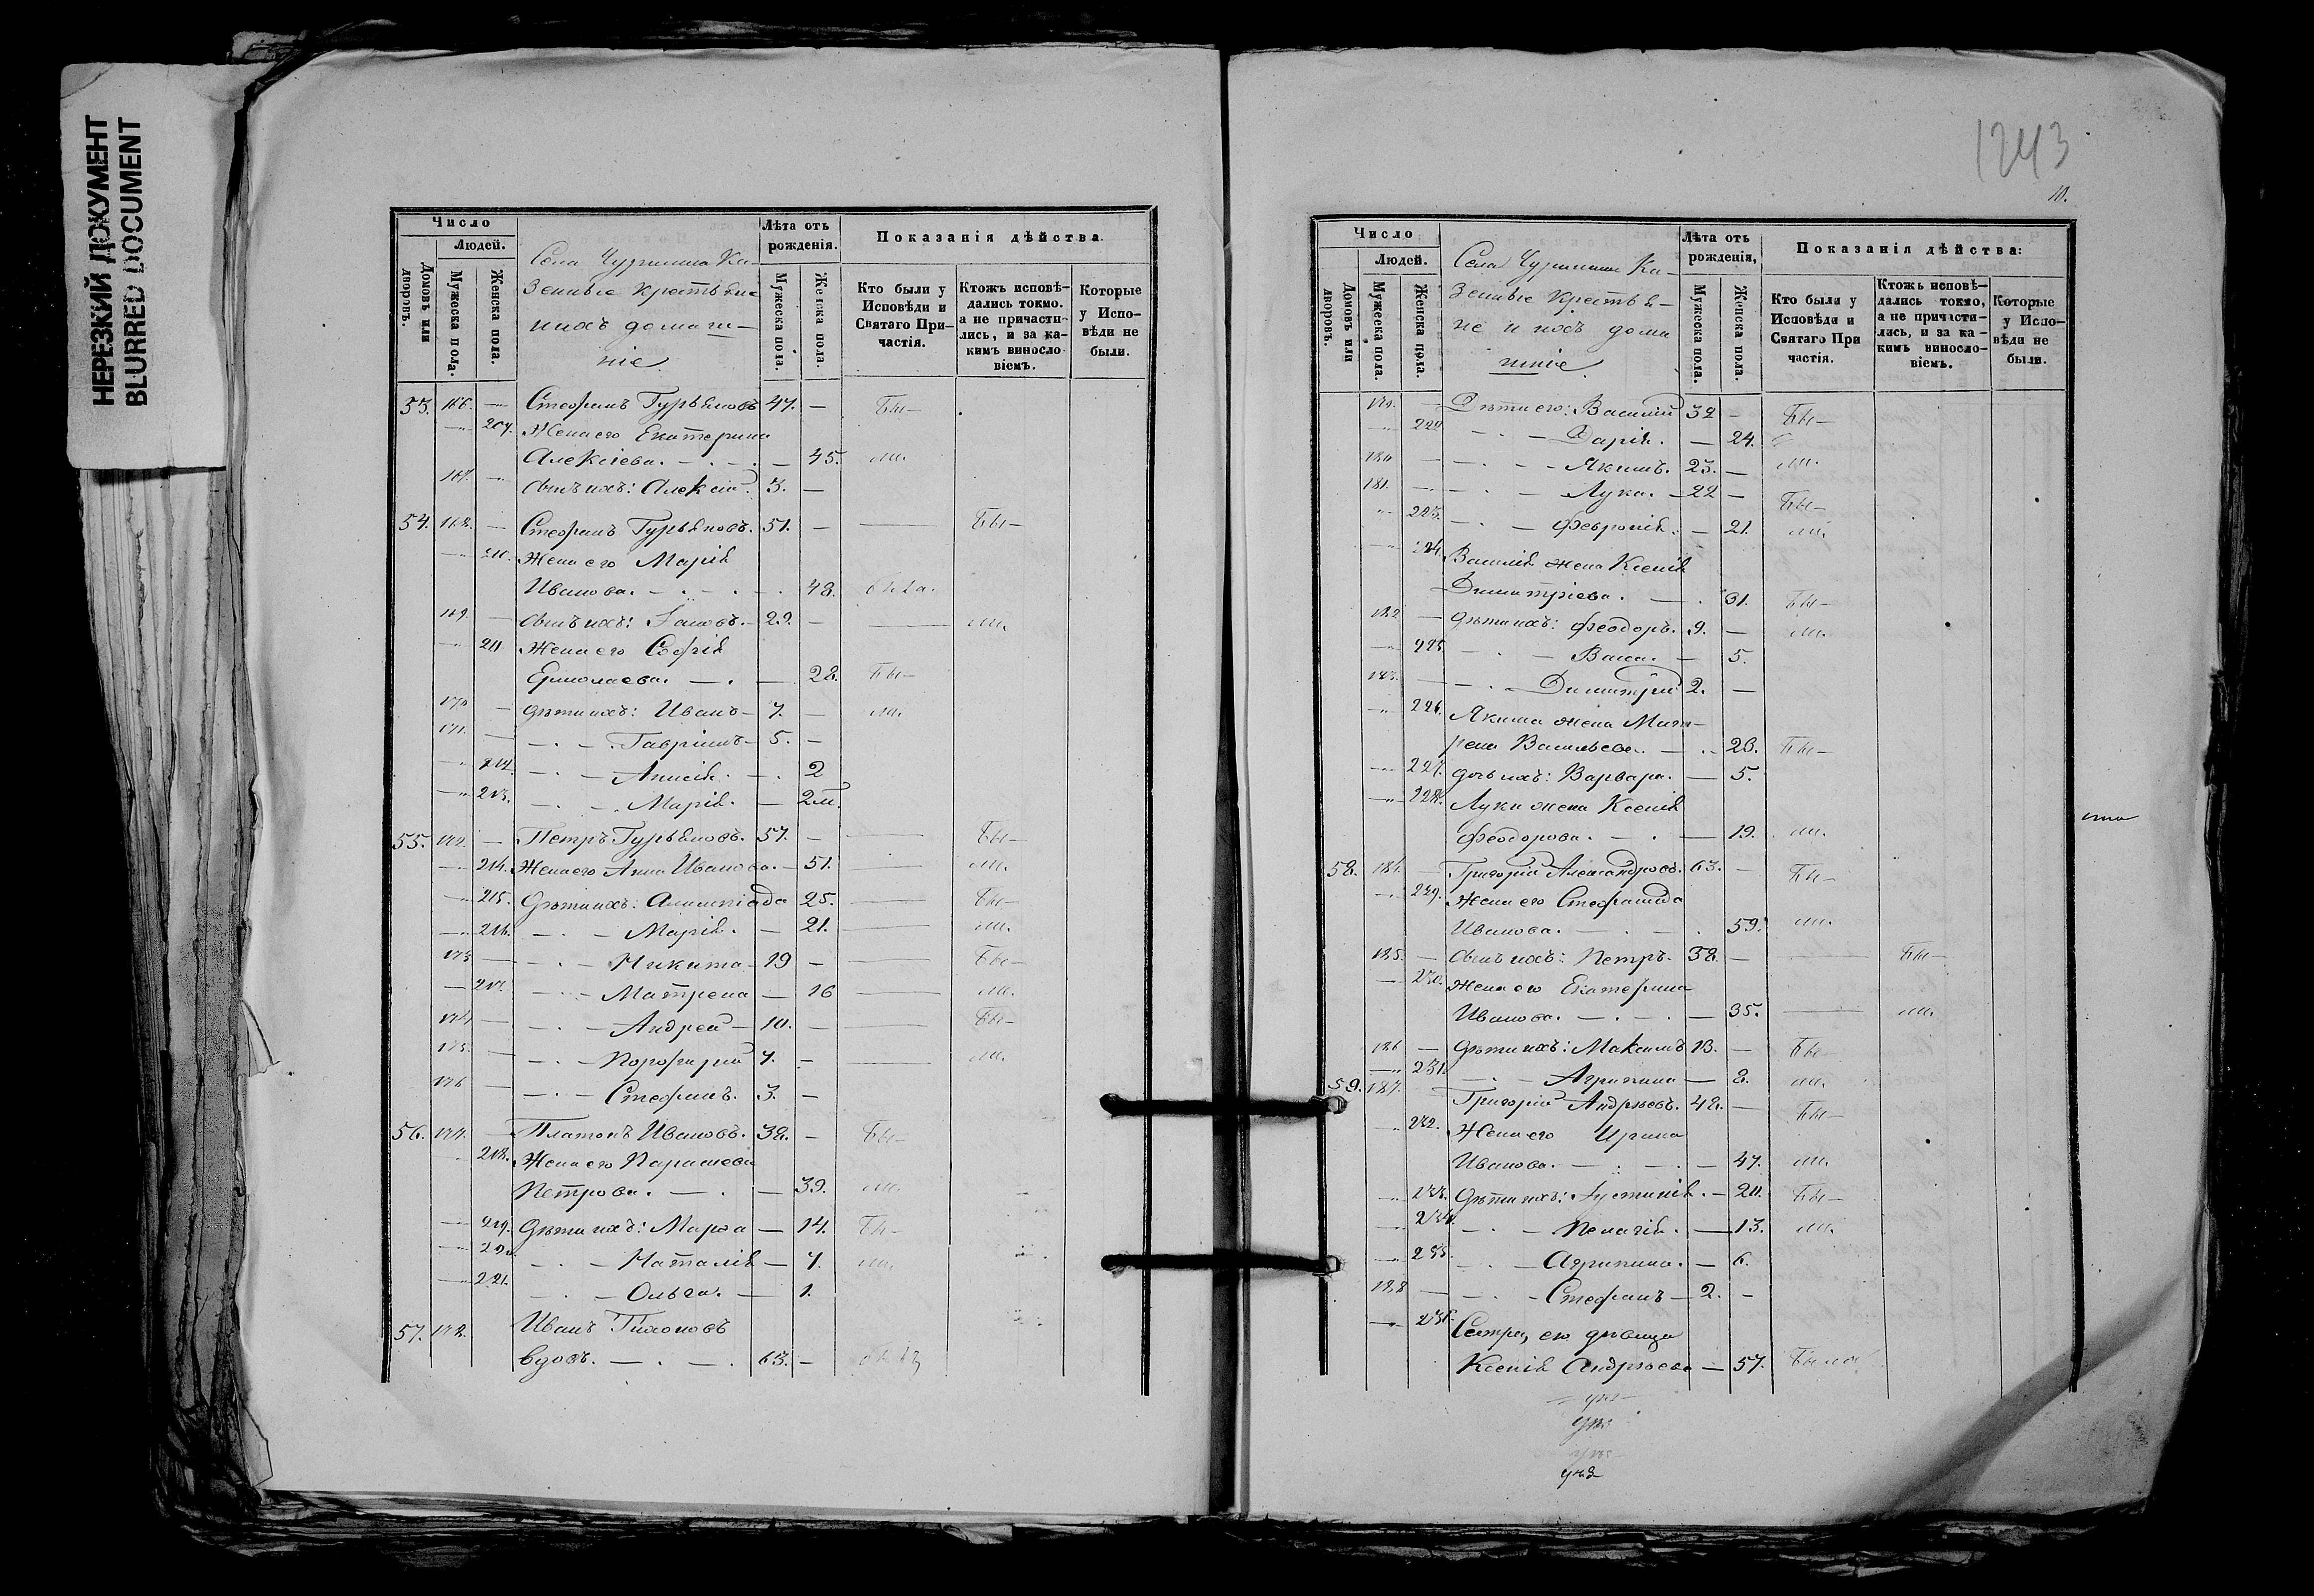 НЕРЕЗКИЙ ДОКУМЕНТ
BLURRED DOCUMENT
Число
Людей.
Домовъ или дворовъ.
Мужеска пола.
Женска пола.
Села Чурилина Ка-
зенные крестьяне
и ихъ домаш-
ніе.
Лѣта отъ рожденія.
Мужеска пола.
Женска пола.
Показанія дѣйства.
Кто были у Исповѣди и Святаго При-частія.
Ктожъ исповѣ-дались токмо. а не причасти-лись, и за ка-кимъ винословіемъ.
Которые у Испо-вѣди не были.
53. 166. — Стефанъ Гурьяновъ 47. — Бы-
— 209. Жена его Екатерина
Алексіева. — 45. ли.
167. — Сынъ ихъ: Алексій. 3. —
54. 168. — Стефанъ Гурьяновъ. 51. — — Бы-
— 210. Жена его Марія
Иванова. — 48. была.
169. — Сынъ ихъ: 29. — — ли.
— 211 Жена его Софія
Ермолаева. — 28. Бы-
170 — Дѣти ихъ: Иванъ — 7. — ли.
171. — Гавріилъ — 5. —
— 212. Анисія. — 2
— 213. Марія. — 2м.
55. 172. — Петръ Гурьяновъ. 57. — — Бы-
— 214. Жена его Анна Иванова. — 51. — ли.
— 215. Дѣти ихъ: Алимпіада 25. — Бы-
— 216. Марія. — 21. — ли.
173 — Никита — 19 — — Бы-
— 217. Матрена — 16 — ли.
174 — Андрей — 10. — — Бы-
175. — Порфирій 7. — — ли.
176 — Стефанъ. 3. —
56. 177. — Платонъ Ивановъ. 38. — Бы-
218. Жена его Параскева
Петрова. — 39. ли.
— 219. Дѣти ихъ: Марѳа — 14. Бы-
— 220 Наталія — 7. ли.
— 221. Ольга. — 1.
57. 178. Иванъ Тихоновъ
вдовъ. — 63. —
1243
10.
Число
Людей.
Домовъ или дворовъ.
Мужеска пола.
Женска пола.
Села Чурилина Ка-
зенные крестья-
не и ихъ дома
шніе.
Лѣта отъ рожденія,
Мужеска пола.
Женска пола.
Показанія дѣйства:
Кто были у Исповѣди и Святаго При частія.
Ктожъ исповѣ-дались токмо, а не причасти-лись, и за ка-кимъ винословіемъ.
Которые у Испо-вѣди не были.
179. — Дѣти его: Василій 32 — Бы-
— 222 Дарія. — 24.
180 — Якимъ. 25. — ли.
181. — Лука. — 22 — Бы-
223. Февронія. — 21. ли.
224. Василія жена Ксенія
Димитріева. — 31. Бы-
182 — Дѣти ихъ: Феодоръ. 9. — ли.
225 Васса. — 5.
183. — Димитрій 2. —
226. Якима жена Мат-
рена Васильева. — 23. Бы-
— 227. Дочь ихъ: Варвара. — 5.
— 228. Луки жена Ксенія
Феодорова. — 19. ли.
58. 184. — Григорій Александровъ. 63. — Бы-
229. Жена его Стефанида
Иванова. — 59. ли.
185. — Сынъ ихъ: Петръ. 38. — — Бы-
— 230. Жена его Екатерина
Иванова. — 35. — ли.
186 — Дѣти ихъ: Максимъ 13. — Бы-
— 231. Агрипина — 8. ли.
59. 187. Григорій Андреевъ. 48. — Бы-
232. Жена его Ирина
Иванова. — 47. ли.
233. Дѣти ихъ: Іустинія. — 20. Бы-
234. Пелагія. — 13. ли.
— 235. Агрипина. — 6.
188 — Стефанъ — 2. —
— 236. Сестра его дѣвица
Ксенія Андреева — 57. Была